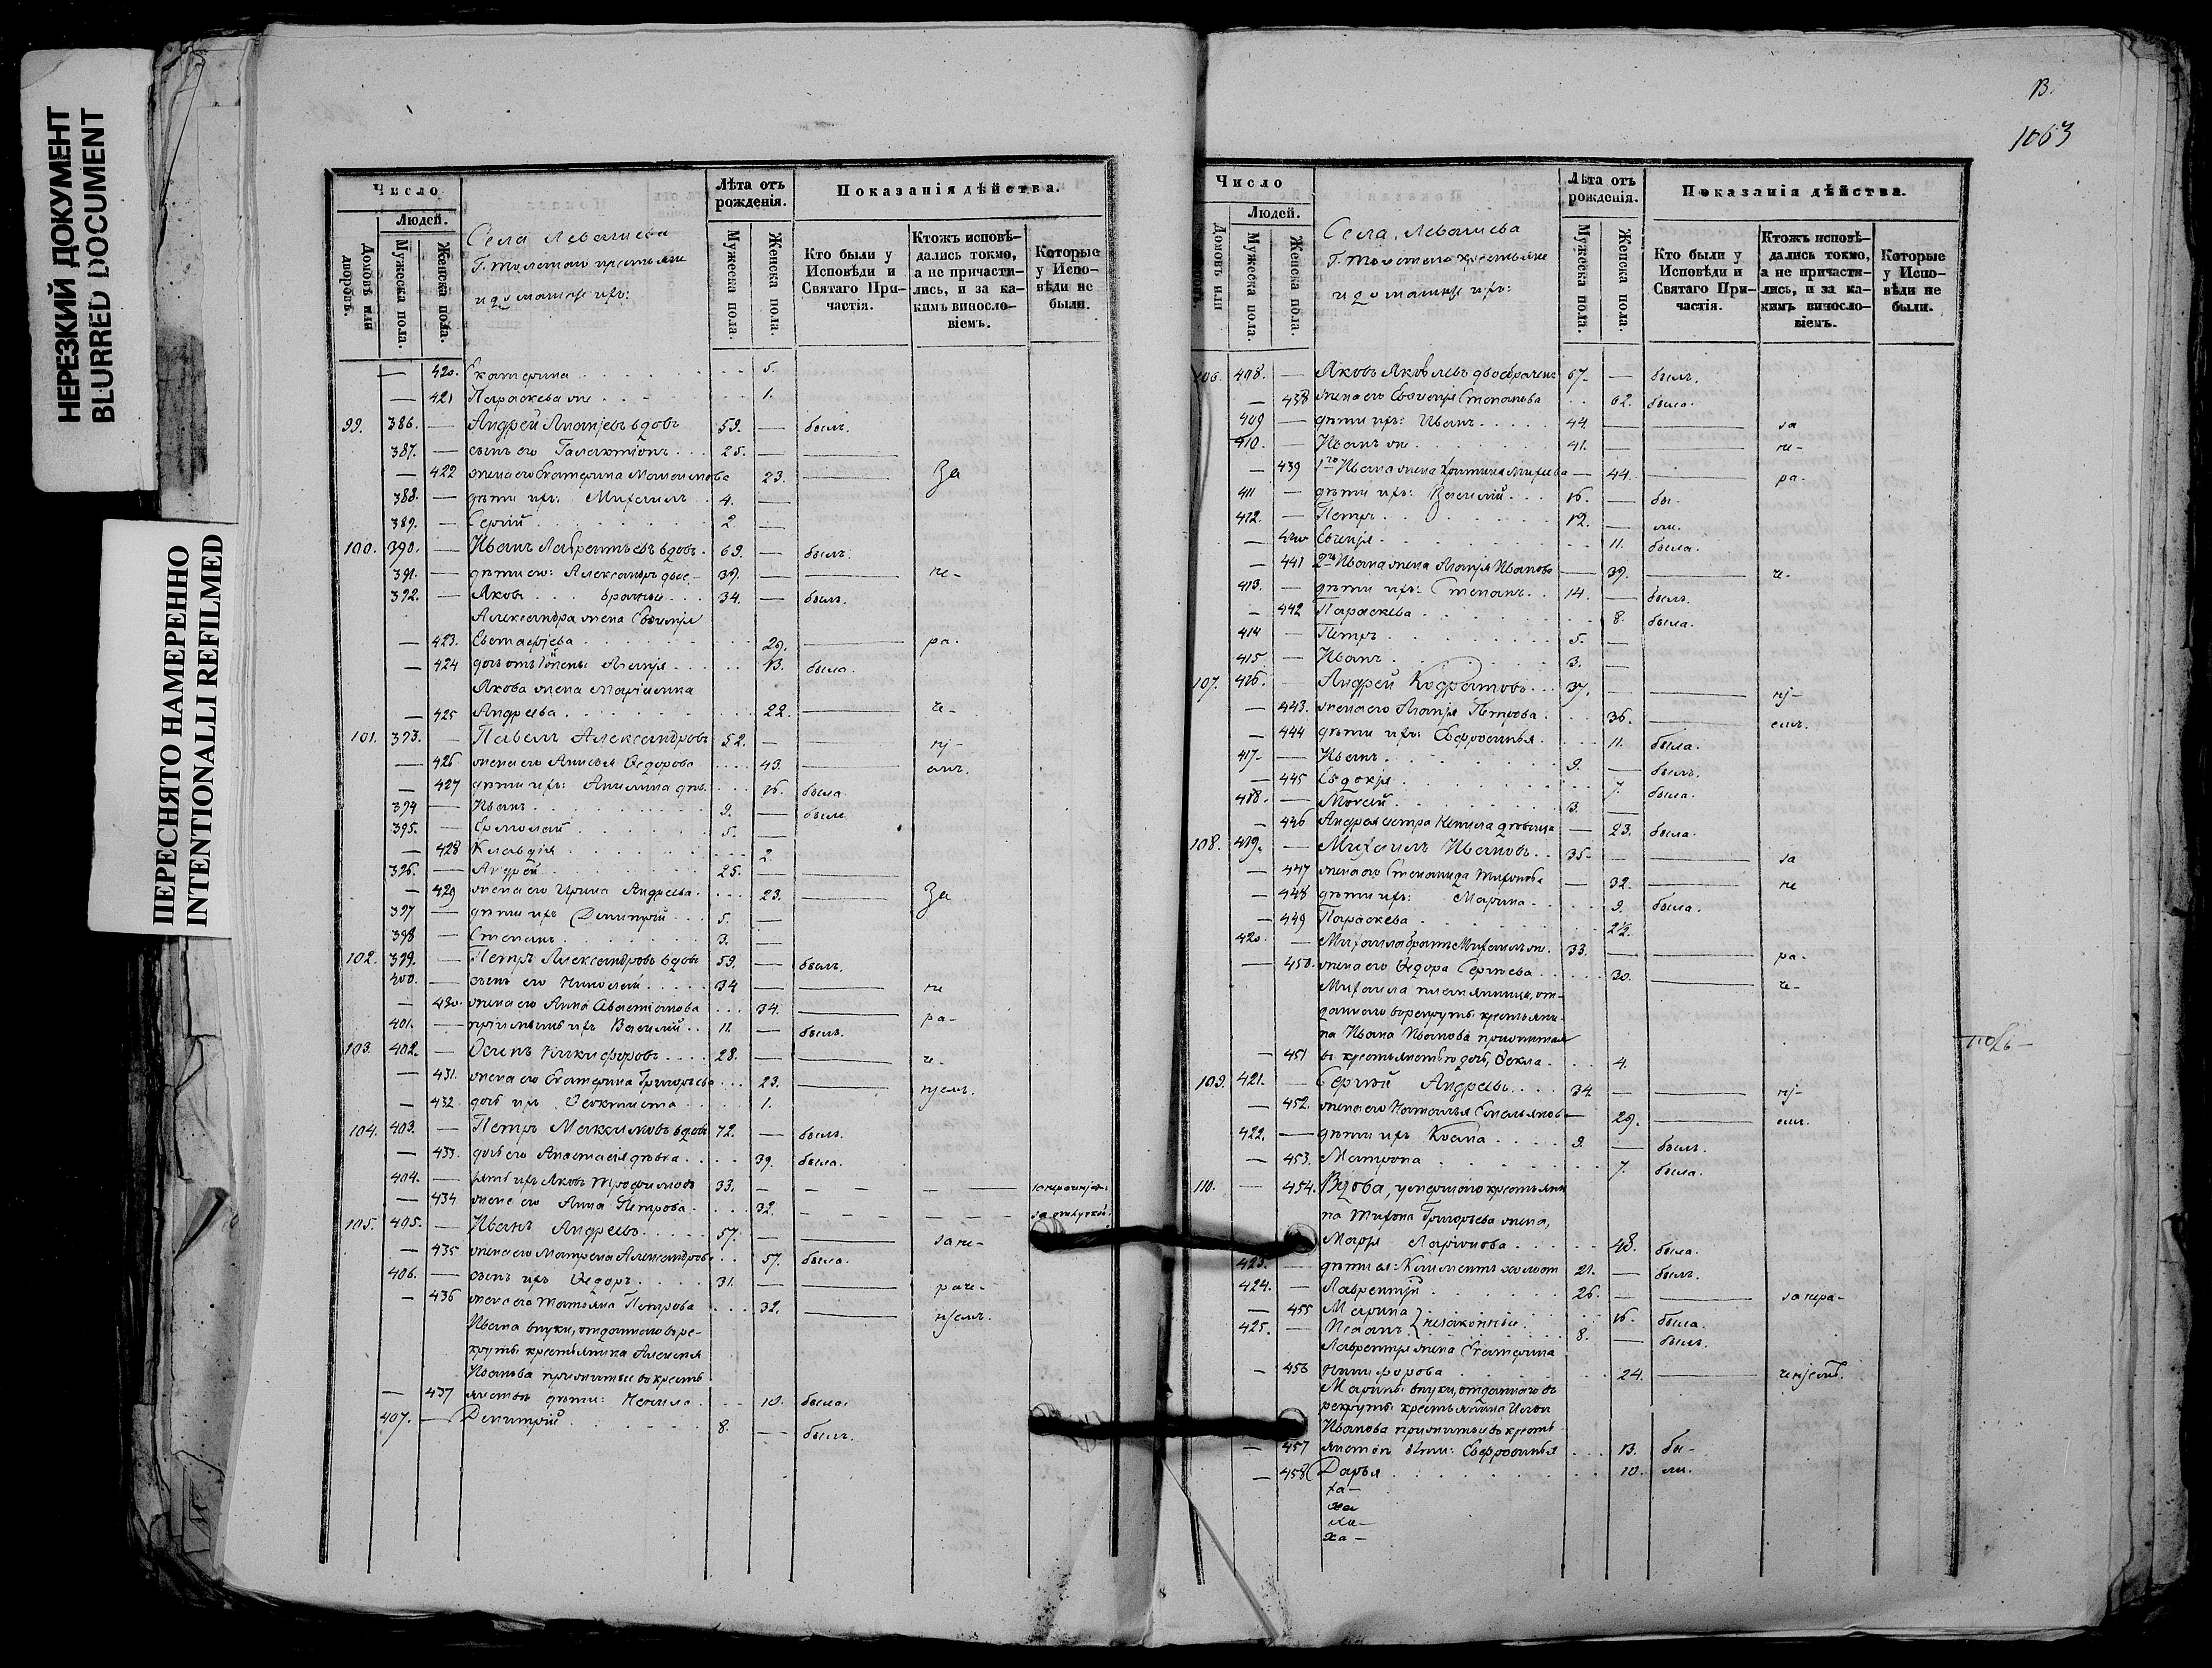 НЕРЕЗКИЙ ДОКУМЕНТ
BLURRED DOCUMENT
ПЕРЕСНЯТО НАМЕРЕННО
INTENTIONALLI REFILMED
Число
Людей.
Домовъ или дворовъ.
Мужеска пола.
Женска пола.
Села Левашева
Г. Толстого крестьяне
и домашніе ихъ:
Лѣта отъ рожденія.
Мужеска пола.
Женска пола.
Показанія дѣйства.
Кто были у Исповѣди и Святаго Причастія.
Ктожъ исповѣ-дались токмо, а не причасти-лись, и за ка-кимъ винослo-віемъ.
Которые у Испо-вѣди не были.
— 420. Екатерина 5.
— 421 Параскева 1.
99. 386. — Андрей вдовъ 59. — былъ.
387. — сынъ его Галактіонъ 25. —
— 422 жена его Екатерина 23. За
388. — дѣти ихъ: Михаилъ 4. —
389. — Сергій 2 —
100. 390. — Иванъ Лаврентьевъ вдовъ 69. — былъ.
391. — дѣти его: Александръ двое- 39. — не-
392. — Яковъ брачные 34. — былъ.
Александра жена Евгенія
— 423. Евстафіева 29. ра-
— 424 дочь отъ Агапія 13. была.
Якова жена
— 425 Андреева 22. че-
101. 393. — Павелъ Александровъ 52. — нj-
— 426 жена его Анисья Ѳедорова 43. емъ.
— 427 дѣти ихъ: Акилина 16. была
394 — Иванъ 9. — былъ
395. — Ермолай 5. —
— 428 Клавдія 2.
396. — Андрей 25. —
— 429 жена его Ирина Андреева 23. За
397 — дѣти ихъ Димитрій 5. —
398 — Степанъ 3. —
102. 399. — Петръ Александровъ вдовъ 59. — былъ.
400. — сынъ его Николай 34 — не
— 430. жена его Анна 34. ра-
401. — ихъ Василій 11 — былъ.
103. 402. — Осипъ Никифоровъ 28. — че-
— 431. жена его Екатерина Григорьева 23. нjемъ.
— 432 дочь ихъ Ѳеоктиста 1.
104. 403. — Петръ Максимовъ вдовъ 72. — былъ.
— 433. дочь его Анастасія дѣвка 39. была.
404. — зять ихъ Яковъ Трофимовъ 33. —
— 434 жена его Анна Петрова 32. за отлучкой.
105. 405. — Иванъ Андреевъ 57. — за не-
— 435 жена его Матрена Александрова 57. была.
406. — сынъ ихъ Ѳедоръ 31. — раче-
— 436 жена его Татьяна Петрова 32. нjемъ.
Ивана внуки, отданнаго въ ре-
круты крестьянина Алексея
Иванова прижитые въ кресть
— 437 янствѣ дѣти: Неонила 10. была.
407. — Димитрій 8. — былъ.
13.
1063
Число
Людей.
Домовъ или
Мужеска пола.
Женска пола.
Села Левашева
Г. Толстого крестьяне
и домашніе ихъ:
Лѣта отъ рожденія.
Мужеска пола.
Женска пола.
Показанія дѣйства.
Кто были у Исповѣди и Святаго При-частія.
Ктожъ исповѣ-дались токмо, а не причасти-лись, и за ка-кимъ винослo-віемъ.
Которые у Испо-вѣди не были.
106. 408. — Яковъ Яковлевъ двоебраченъ 67. — былъ.
— 438 жена его Евгенія Степанова 62. была.
409 — дѣти ихъ: Иванъ 44. — за
410. — Иванъ же 41. — не-
— 439 1го Ивана жена Христина Михеева — 44. ра-
411 — дѣти ихъ: Василій 16. — бы-
412. — Петръ 12. — ли.
— 440 Евгенія 11. была.
— 441 2го Ивана жена Агапія Иванова — 39. че-
413. — дѣти ихъ: Степанъ 14. — былъ.
— 442 Параскева 8. была.
414 — Петръ 5. —
415. — Иванъ 3. —
107. 416. — Андрей Кодратовъ 37. — нj-
— 443. жена его Агапія Петрова 36. емъ.
— 444 дѣти ихъ: Евфросинья 11. была.
417. — Иванъ 9. — былъ.
— 445 Евдокія 7. была.
418. — Моисей 3. —
— 446 Андрея сестра Ненила дѣвица — 23. была.
108. 419. — Михаилъ Ивановъ 35. — за
— 447 жена его Степанида Тихонова — 32. не
— 448 дѣти ихъ: Марина 9. была.
— 449 Параскева 2½.
420. — Михаила братъ Михаилъ же 33. — ра-
— 450. жена его Ѳедора Сергѣева 30. че-
Михаила племянница, от-
даннаго въ рекруты крестьяни-
на Ивана Иванова прижитая
— 451 въ крестьянствѣ дочь, Ѳекла 4.
109. 421. — Сергѣй Андреевъ 34 — нj-
— 452. жена его Наталья Емельянова — 29. емъ.
422. — дѣти ихъ Косма 9. — былъ.
— 453. Матрона 7. была.
110. — 454. Вдова, умершаго крестьяни
на Тихона Григорьева жена,
Марья Ларіонова 48. была.
423. — дѣти ея: Климентъ холостъ 21. — былъ.
424. — Лаврентій 26. — за нера-
— 455 Марина } незаконные 16. была.
425. — 8. — былъ.
Лаврентія жена Екатерина
— 456 Никифорова 24. ченjемъ.
Марьи внуки, отданнаго въ
рекруты крестьянина
Иванова прижитые въ кресть
— 457 янствѣ дѣти: Евфросинья 13. бы-
— 458 Дарья 10. ли.
ха-
ха-
ха-